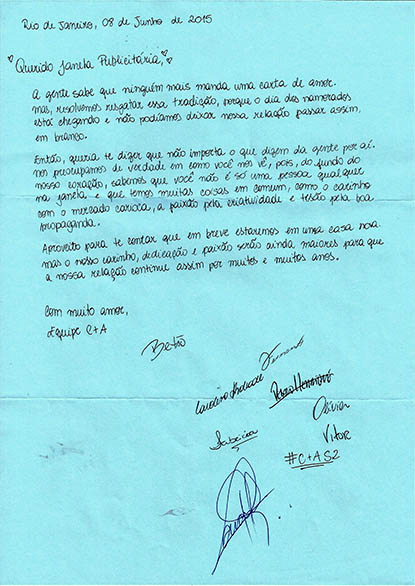 Rio de Janeiro, 08 de Junho de 2015
Querido Janela Publicitária,
A gente sabe que ninguém mais manda uma carta de amor.
mas, resolvemos resgatar essa tradição, porque o dia dos namorados
está chegando e não podíamos deixar nossa relação passar assim,
em branco.
Então, queria te dizer que não importa o que dizem da gente por aí.
nos preocupamos de verdade em como você nos vê, pois, do fundo do
nosso coração, sabemos que você não é só uma pessoa qualquer
na janela e que temos muitas coisas em comum, como o carinho
com o mercado carioca, a paixão pela criatividade e tesão pela boa
propaganda.
Aproveito para te contar que em breve estaremos em uma casa nova.
mas o nosso carinho, dedicação e paixão serão ainda maiores para que
a nossa relação continue assim por muitos e muitos anos.
Com muito amor,
Equipe C+A
Fernando
Olivia
Vitor
#C+AS2